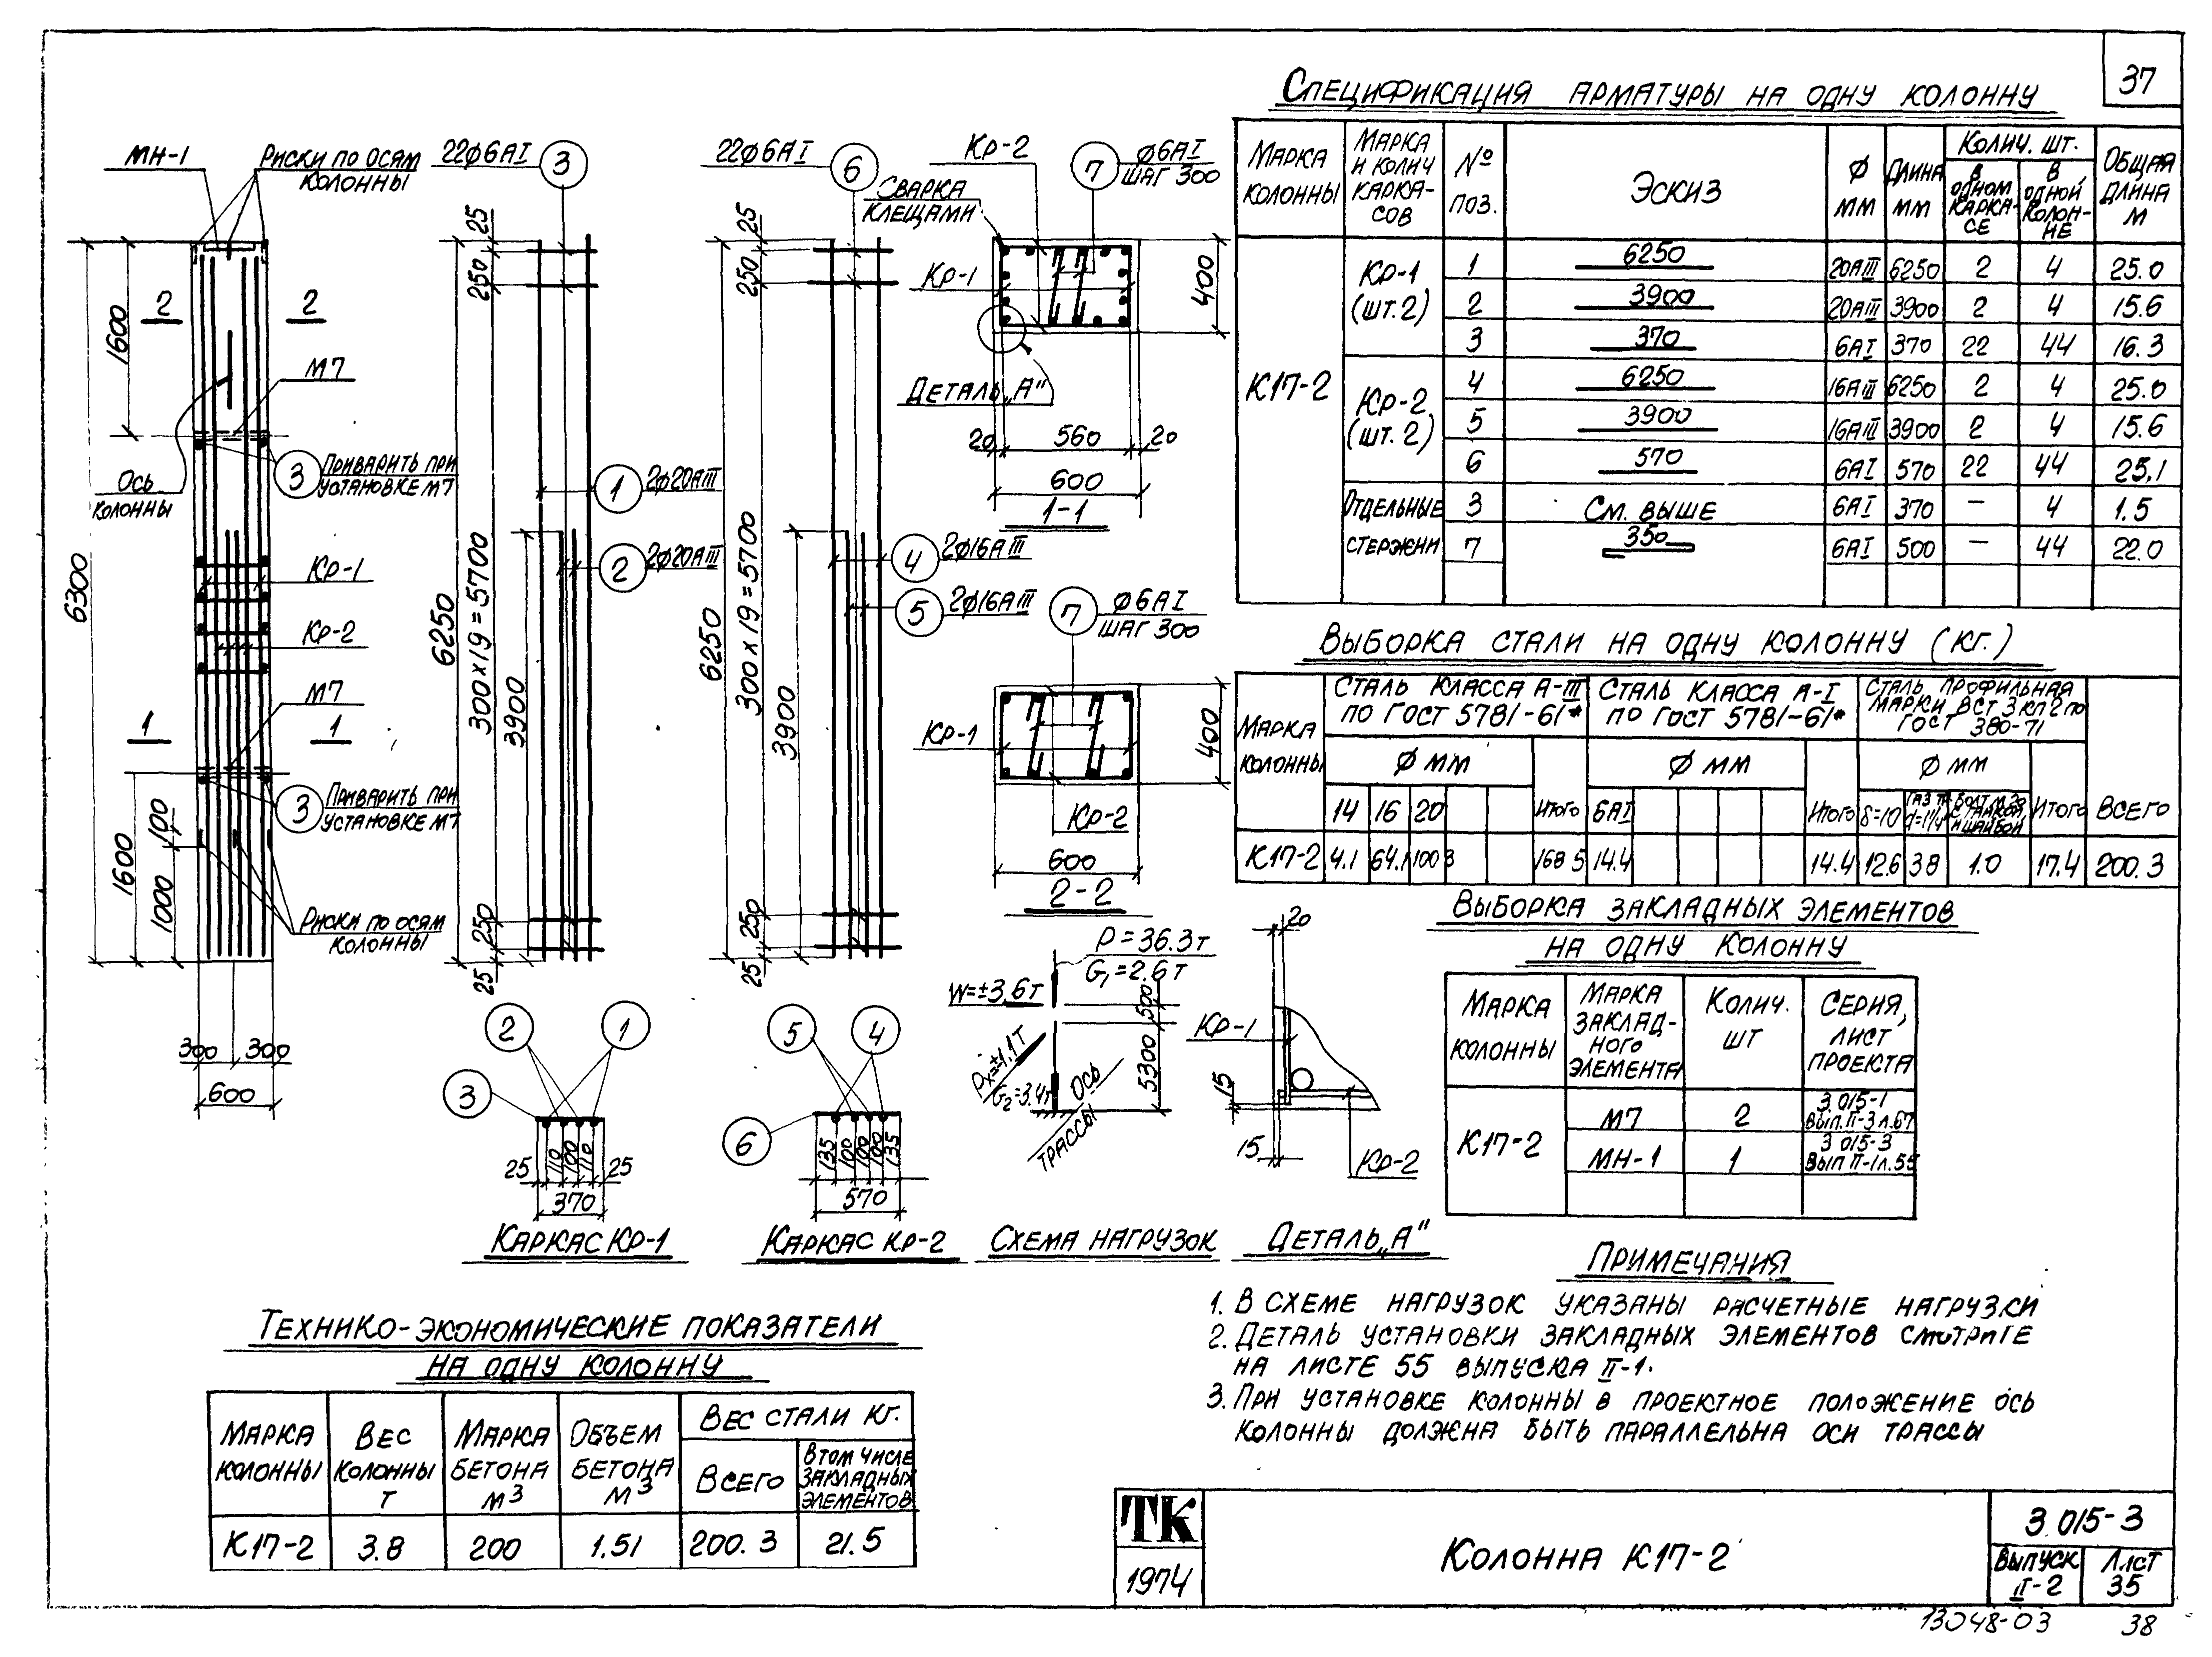 37
Спецификация арматуры на одну колонну
Марка колонны
Марка и колич каркасов
№ поз.
Эскиз
Ф мм
Длина мм
Колич. шт.
в одном каркасе
в одной колонне
Общая длина м
К17-2
Кр-1 (шт.2)
1 6250 20АIII 6250 2 4 25.0
2 3900 20АIII 3900 2 4 15.6
3 370 6АI 370 22 44 16.3
Кр-2 (шт.2)
4 6250 16АIII 6250 2 4 25.0
5 3900 16АIII 3900 2 4 15.6
6 570 6АI 570 22 44 25,1
Отдельные стержни
3 См. выше 6АI 370 — 4 1.5
7 350 6АI 500 — 44 22.0
Выборка стали на одну колонну (кг.)
Марка колонны
Сталь класса А-III по ГОСТ 5781-61*
Сталь класса А-I по ГОСТ 5781-61*
Сталь профильная марки ВСт3кп2 по ГОСТ 380-71
Ф мм
Ф мм
Ф мм
14 16 20 Итого 6АI Итого δ=10 Итого Всего
К17-2 4.1 64.1 100 3 168 5 14.4 14.4 12.6 3 8 1.0 17.4 200.3
Выборка закладных элементов
на одну колонну
Марка колонны
Марка закладного элемента
Колич. шт
Серия, лист проекта
К17-2
М7 2 3 015-1 Вып. II-3 л.67
МН-1 1 3 015-3 Вып II-1 л.55
МН-1
Риски по осям
колонны
2 2
1600
М7
3 Приварить при
установке М7
Ось
колонны
6300
Кр-1
Кр-2
М7
1 1
3 Приварить при
установке М7
100
1600
1000
Риски по осям
колонны
300 300
600
22ф6АI 3
25
250
6250
300х19=5700
3900
1 2ф20АIII
2 2ф20АIII
250
25
2 1
3
25 110 100 110 25
370
Каркас Кр-1
22ф6АI 6
25
250
6250
300х19=5700
3900
4 2ф16АIII
5 2ф16АIII
250
25
5 4
6
135 100 100 100 135
570
Каркас Кр-2
Кр-2
7 ф6АI
шаг 300
Сварка
клещами
Кр-1
400
Деталь „А"
20 560 20
600
1-1
7 ф6АI
шаг 300
Кр-1
400
Кр-2
600
2-2
Р=36.3т
G₁=2.6т
W=±3,6т
500
Рх=±1.1т
G₂=3.4т
5300
Ось
трассы
Схема нагрузок
20
Кр-1
15
15
Кр-2
Деталь „А"
Примечания
1. В схеме нагрузок указаны расчетные нагрузки
2. Деталь установки закладных элементов смотрите
на листе 55 выпуска II-1.
3. При установке колонны в проектное положение ось
колонны должна быть параллельна оси трассы
Технико-экономические показатели
на одну колонну
Марка колонны
Вес колонны т
Марка бетона м3
Объем бетона м3
Вес стали кг.
Всего
В том числе закладных элементов
К17-2 3.8 200 1.51 200.3 21.5
ТК
1974
Колонна К17-2
3.015-3
Выпуск II-2
Лист 35
13048-03 38